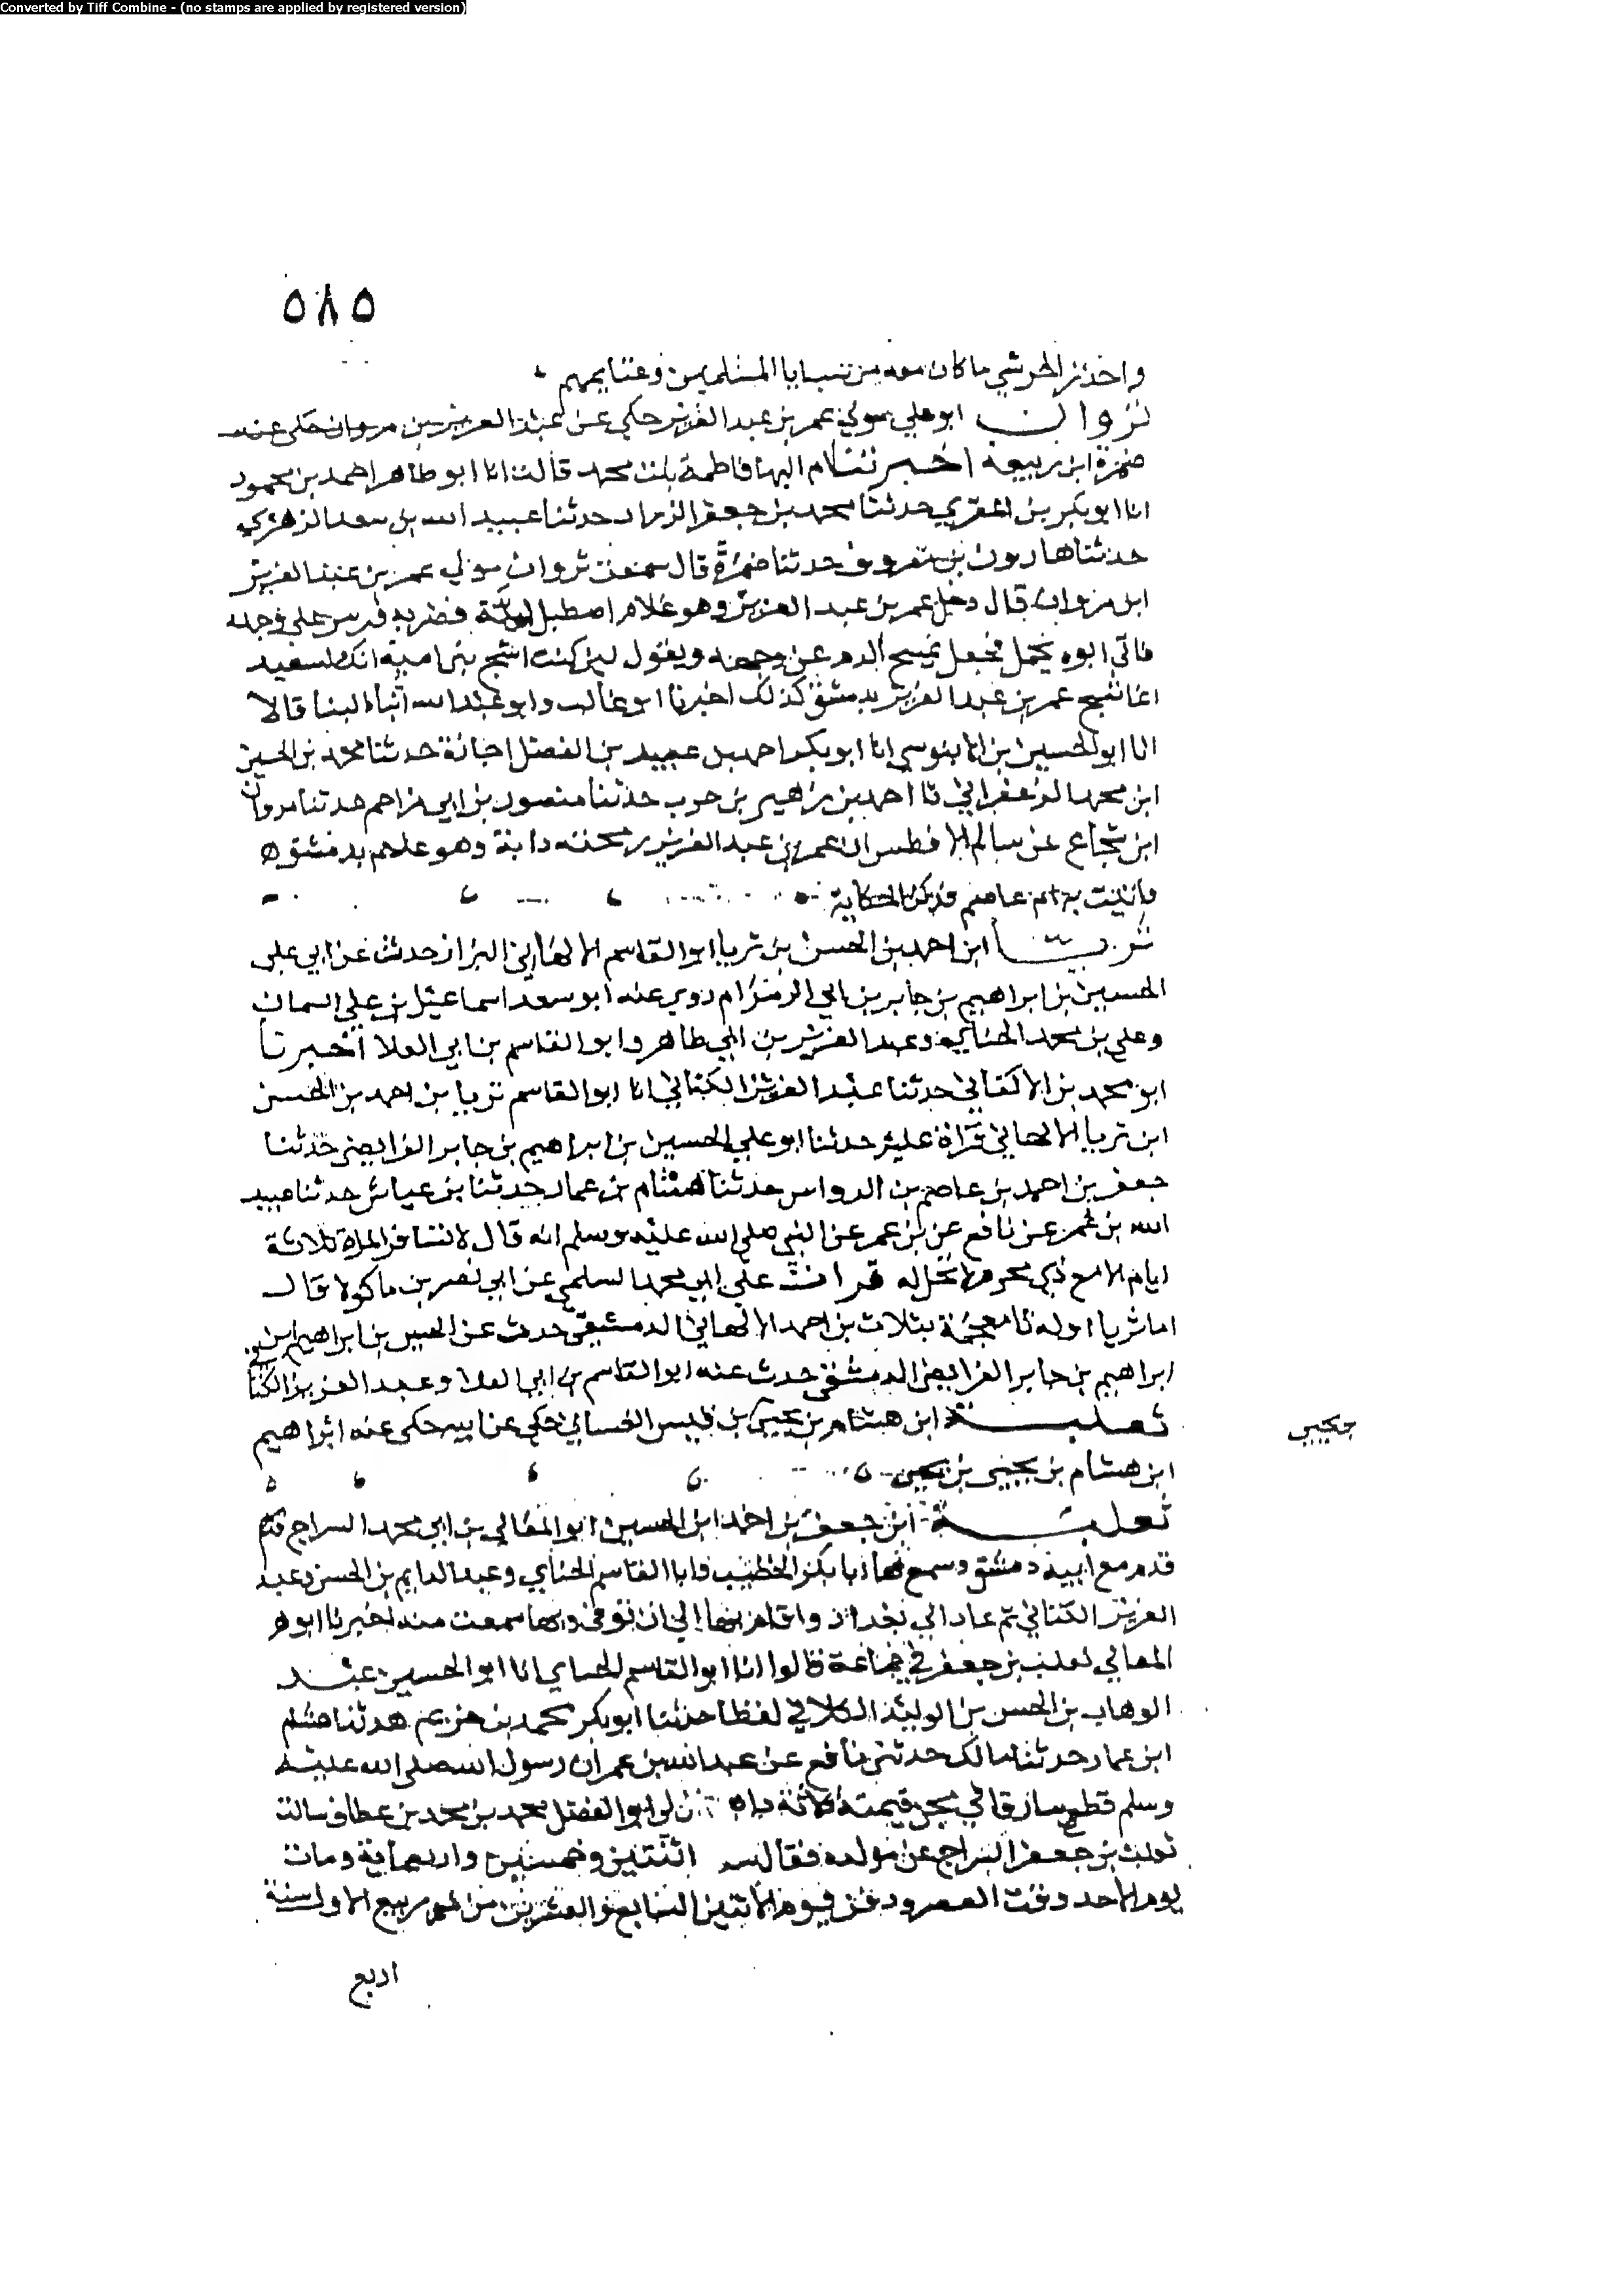 Converted by Tiff Combine - (no stamps are applied by registered version)
٥٨٥
واخذ الحرشي ما كان معه من سبايا المسلمين وغنايمهم
ثروان ابو علي مولي عمر بن عبد العزيز حكي عن عبد العزيز بن مروان حكى عنه
ضمرة ابن ربيعة اخبرتنا ام البها فاطمة بنت محمد قالت انا ابو طاهر احمد بن محمود
انا ابو بكر بن المقري حدثنا محمد بن جعفر الزراد حدثنا عبيد الله بن سعد الزهري
حدثنا هارون بن معروف حدثنا ضمرة قال سمعت ثروان مولي عمر بن عبد العزيز
ابن مروان قال دخل عمر بن عبد العزيز وهو غلام اصطبل فضربه فرس على وجهه
فاتي ابوه يحمل فجعل يمسح الدم عن وجهه ويقول لين كنت اشج بني امية انك لسعيد
انما شج عمر بن عبد العزيز بدمشق كذلك اخبرنا ابو غالب وابو عبد الله ابنا البنا قالا
انا ابو الحسين بن الابنوسي انا ابو بكر احمد بن عبيد بن الفضل اجازة حدثنا محمد بن الحسين
ابن محمد الزعفراني نا احمد بن زهير بن حرب حدثنا منصور بن ابي مزاحم حدثنا مروان
ابن شجاع عن سالم الافطس ان عمر بن عبد العزيز رمحته دابة وهو غلام بدمشق
فاتيت به ام عاصم فذكر الحكاية
ثريا ابن احمد بن الحسن بن ثريا ابو القاسم الالهاني البزاز حدث عن ابي علي
الحسين بن ابراهيم بن جابر بن ابي الزمزام روي عنه ابو سعد اسماعيل بن علي السمان
وعلي بن محمد الحنايي وعبد العزيز بن ابي طاهر وابو القاسم بن ابي العلا اخبرنا
ابو محمد بن الاكفاني حدثنا عبد العزيز الكتاني انا ابو القاسم ثريا بن احمد بن الحسن
ابن ثريا الالهاني قراة عليه حدثنا ابو علي الحسين بن ابراهيم بن جابر الفرايضي حدثنا
جعفر بن احمد بن عاصم بن الرواس حدثنا هشام بن عمار حدثنا بن عياش حدثنا عبيد
الله بن عمر عن نافع عن بن عمر عن النبي صلى الله عليه وسلم انه قال لا تسافر المراة ثلاثة
ايام الا مع ذي محرم لا تحل له قرات علي ابي محمد السلمي عن ابي نصر بن ماكولا قال
اما ثريا اوله ثا معجمة بثلاث بن احمد الالهاني الدمشقي حدث عن الحسين بن ابراهيم ابن ابي
ابراهيم بن جابر الفرايضي الدمشقي حدث عنه ابو القاسم بن ابي العلا وعبد العزيز الكتا
ثعلبة ابن هشام بن يحيى بن قيس الغساني حكي عن ابيه حكى عنه ابراهيم
ابن هشام بن يحيى بن يحيى
ثعلب ابن جعفر بن احمد ابن الحسين ابو المعالي بن ابي محمد السراج قدم
قدم مع ابيه دمشق وسمع بها ابا بكر الخطيب وابا القاسم الحناي وعبد الدايم بن الحسن وعبد
العزيز الكتاني ثم عاد الي بغداد واقام بها الي ان توفي وبها سمعت منه اخبرنا ابو
المعالي ثعلب بن جعفر في جماعة قالوا انا ابو القاسم الحناي انا ابو الحسين عبد
الوهاب بن الحسن بن الوليد الكلابي لفظا حدثنا ابو بكر محمد بن خريم حدثنا هشام
ابن عمار حدثنا مالك حدثني نافع عن عبد الله بن عمر ان رسول الله صلى الله عليه
وسلم قطع سارقا في مجن قيمته ثلاثة ابو الفضل محمد بن محمد بن عطاف سالت
ثعلب بن جعفر السراج عن مولده فقال اثنتين وخمسين واربعماية ومات
يوم الاحد وقت العصر ودفن يوم الاثنين السابع والعشرين من شهر ربيع الاول سنة
اربع